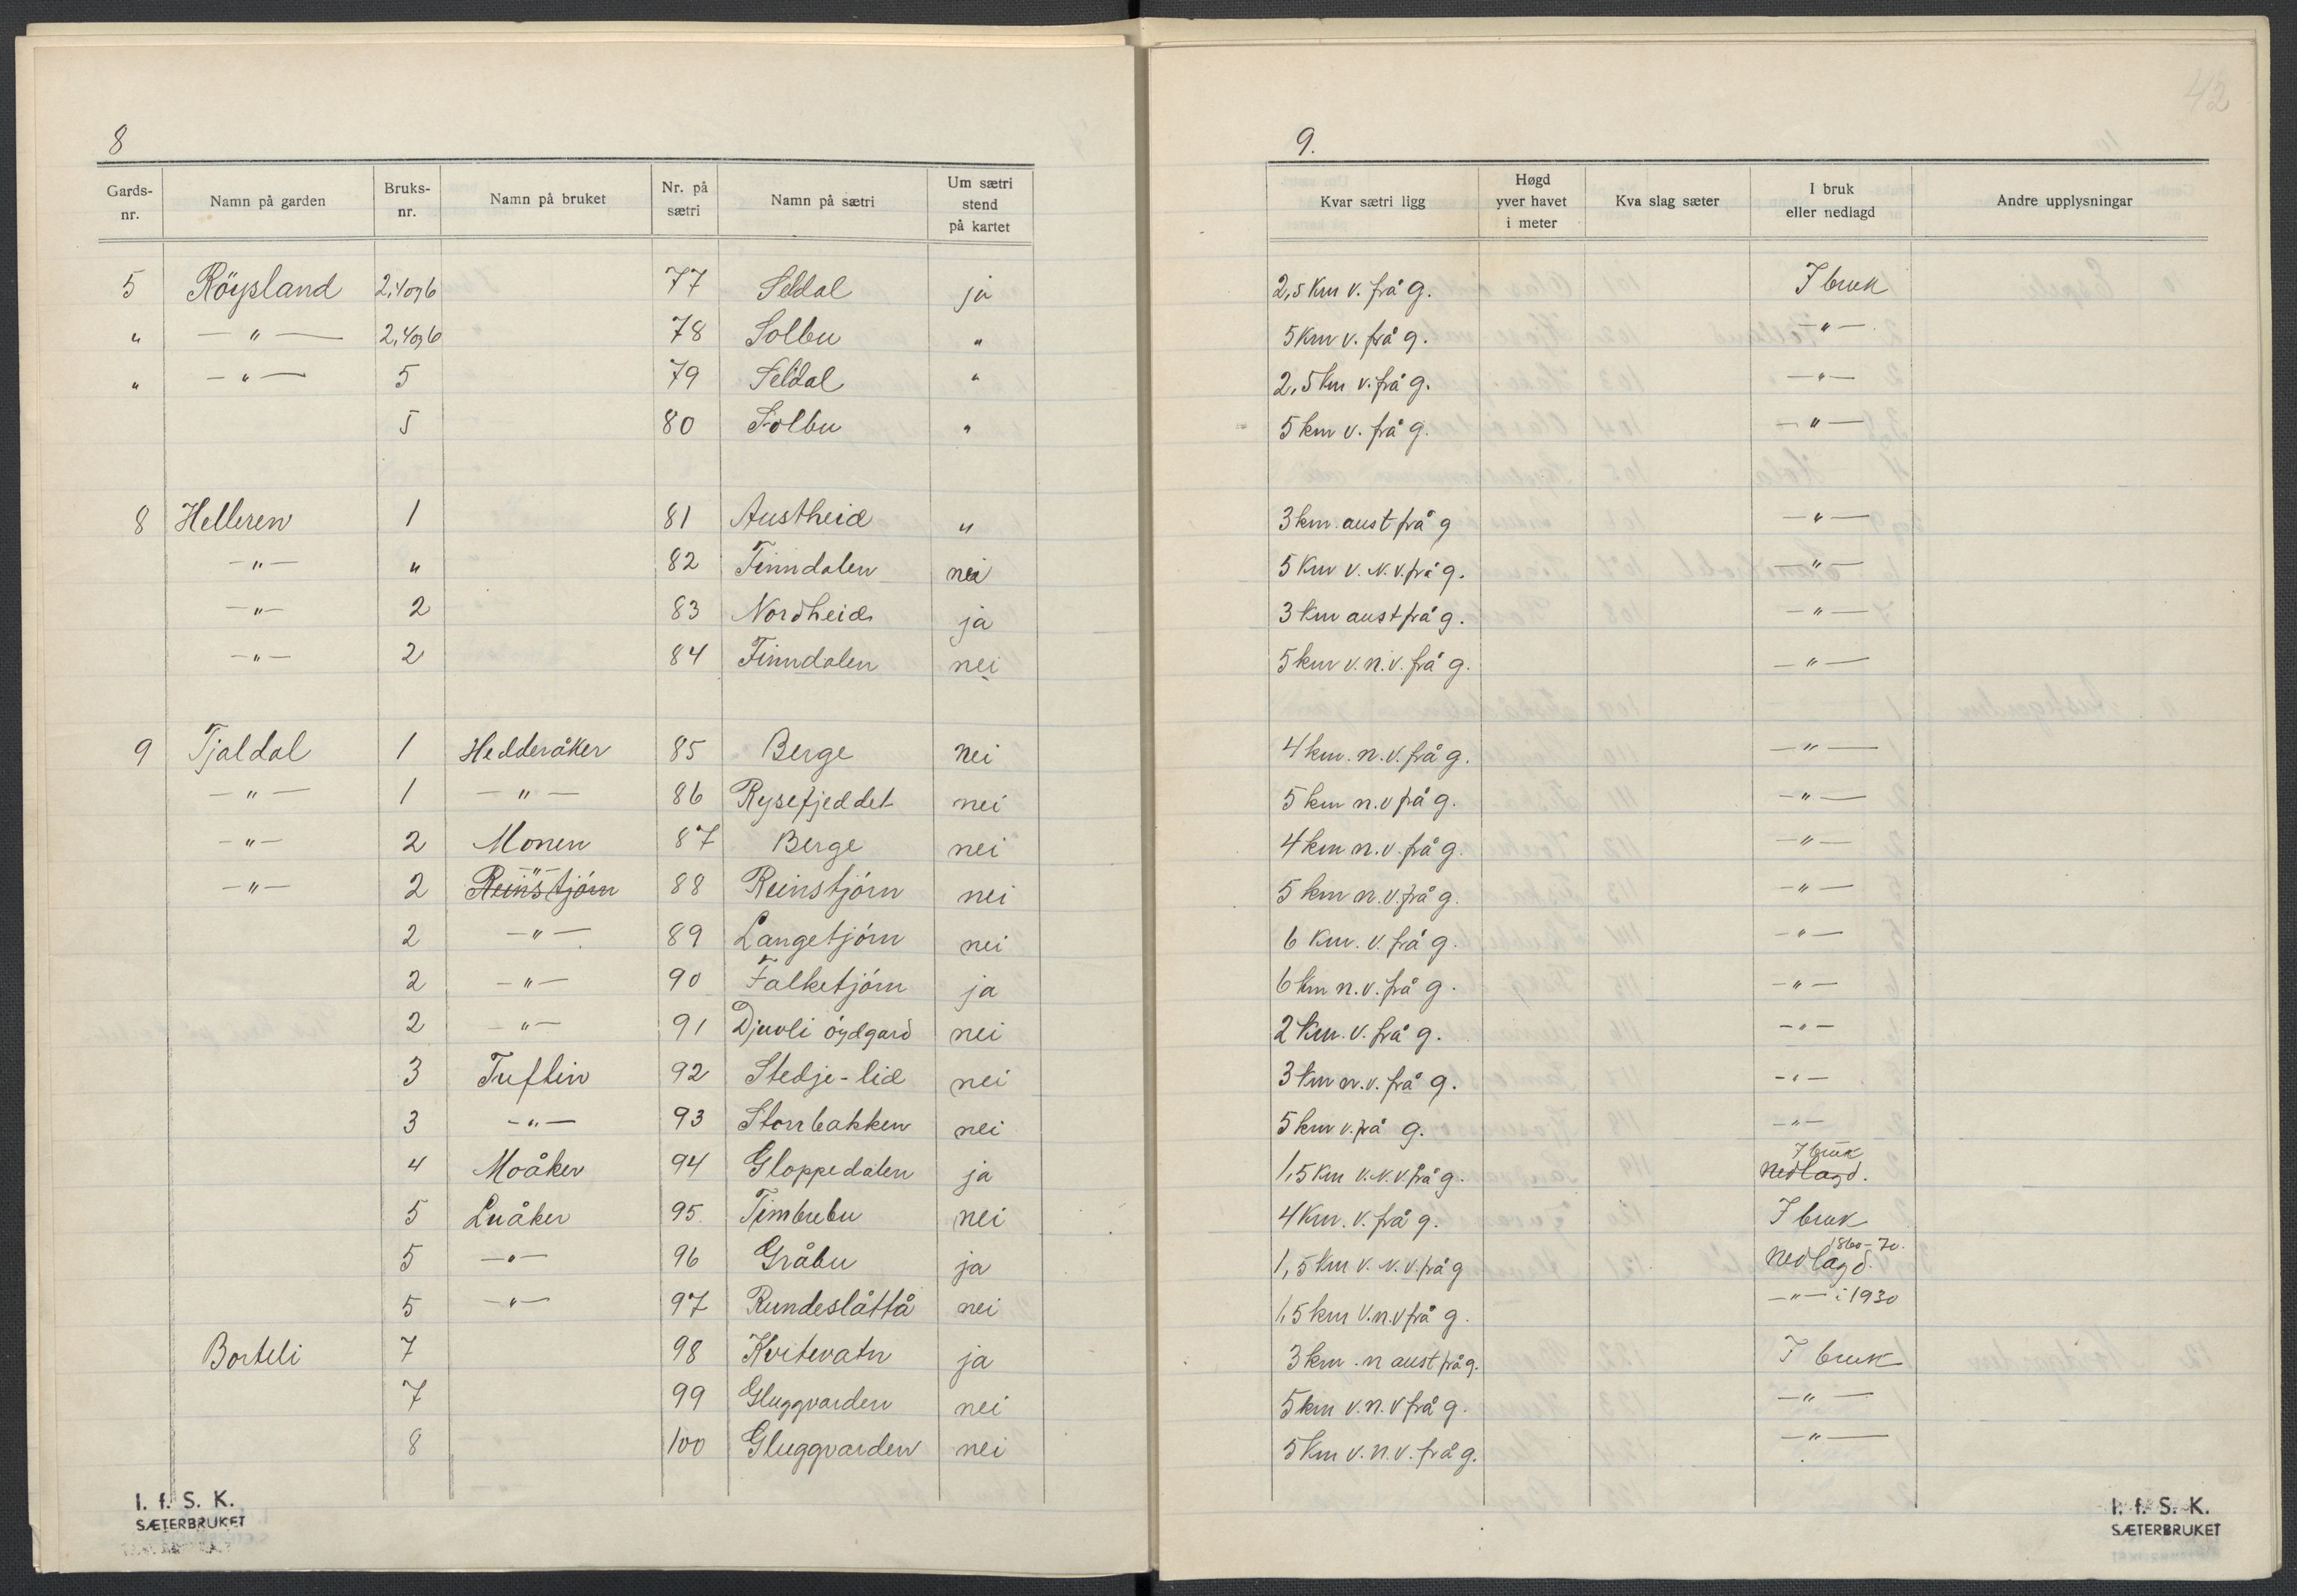 8
Gards-nr. Namn på garden Bruks-nr. Namn på bruket Nr. på sætri Namn på sætri Um sætri stend på kartet
5 Röysland 2,4 og 6 77 Seldal ja
" —"— 2,4 og 6 78 Solbu "
" —"— 5 79 Seldal "
5 80 Solbu "
8 Helleren 1 81 Austheid "
—"— " 82 Finndalen nei
—"— 2 83 Nordheid ja
—"— 2 84 Finndalen nei
9 Tjaldal 1 Hedderåker 85 Berge nei
—"— 1 —"— 86 Rysefjeddet nei
—"— 2 Monen 87 Berge nei
—"— 2 Reinstjörn —"— 88 Reinstjörn nei
2 —"— 89 Langetjörn nei
2 —"— 90 Falketjörn ja
2 —"— 91 Djuvli öydgard nei
3 Tuftin 92 Stedje-lid nei
3 —"— 93 Storrbakken nei
4 Moåker 94 Gloppedalen ja
5 Luåker 95. Timbubu nei
5 —"— 96 Gråbu ja
5 —"— 97 Rundeslåttå nei
Borteli 7 98 Kvitevatn ja
7 99 Gluggvarden nei
8 100 Gluggvarden nei
I. f. S. K.
SÆTERBRUKET
42
9.
Kvar sætri ligg Høgd yver havet i meter Kva slag sæter I bruk eller nedlagd Andre upplysningar
2,5 km v. frå g. I bruk
5 km v. frå g. —"—
2,5 km v. frå g. —"—
5 km v. frå g. —"—
3 km. aust frå g —"—
5 km v. N. v. frå g. —"—
3 km aust frå g. —"—
5 km v. n. v. frå g. —"—
4 km. n. v. frå g. —"—
5 km n. v frå g. —"—
4 km n. v. frå g. —"—
5 km n. v. frå g. —"—
6 km. v. frå g. —"—
6 km n. v. frå g. —"—
2 km. v. frå g. —"—
3 km n. v. frå g. —"—
5 km v. frå g. —"—
1,5 km v. N. v. frå g. I bruk Nedlagd.
4 km. v. frå g. I bruk
1,5 km v. N. v. frå g Nedlagd. 1860-70.
1,5 km v. n. v frå g. —"— i 1930
3 km. n aust frå g. I bruk
5 km v. n. v frå g. —"—
5 km v. n. v. frå g. —"—
I. f. S. K.
SÆTERBRUKET